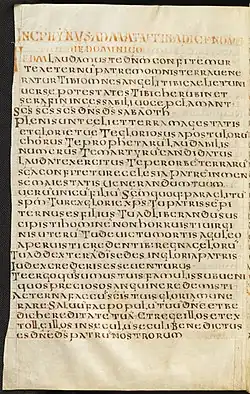 INC PSYMNUS AD MATUTINOS DICENDUM
DIE DOMINICO
TEDM laudamus te dnm confitemur
Te aeternu patrem omnis terra uene
ratur Tibi omnes angeli tibi caeli et uni
uerse potestates Tibi cherubin et
serafin incessabili uoce proclamant
scs scs scs dns ds sabaoth
Pleni sunt celi et terra maiestatis
et gloriae tue Te gloriosus apostoloru
chorus Te prophetaru laudabilis
numerus Te martyru candidatus
laudat exercitus Te per orbe terraru
sca confitetur ecclesia patre inmen
se maiestatis uenerandum tuum
ueru unicu filiu scm quoq. paraclitu
spm Tu rex gloriae xps Tu patris sempi
ternus es filius Tu ad liberandum sus
cepisti hominem non horruisti uirgi
nis uteru Tu deuicto mortis aculeo
aperuisti credentibus regna celoru
Tu ad dexteram di sedes in gloria patris
Iudex crederis esse uenturus
Te ergo quesumus tuis famulis subueni
quos precioso sanguine redemisti
aeterna fac cu scis tuis gloria mune
rare Saluu fac populu tuu dne et be
dic hereditate tua et rege illos et ex
tolle illos in seculu seculi Benedictus
es dne ds patru nostrorum